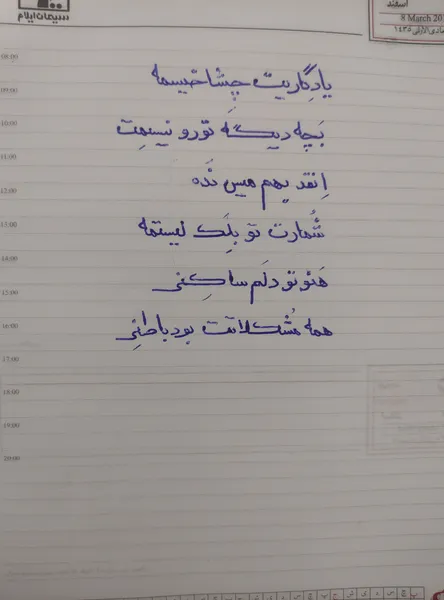 سیمان ایلام
اسفند
8 March 20
08:00
09:00
10:00
11:00
12:00
13:00
14:00
15:00
16:00
17:00
18:00
19:00
20:00
یادگاریت چشا خیسمه
بَچه دیگَه تورو نیسمِت
اِنقد بِهم میس نَده
شُمارت تو بِلَک لیستمه
هَنو تو دلَم ساکِنی
همه مُشکلاتت بود باطنِی